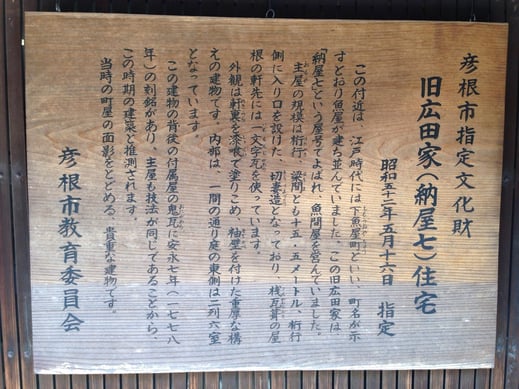 彦根市指定文化財
旧広田家(納屋七)住宅
昭和五十二年五月十六日 指定
この付近は、江戸時代には下魚屋町といい、町名が示
すとおり魚屋が建ち並んでいました。この旧広田家は、
「納屋七」という屋号でよばれ、魚問屋を営んでいました。
主屋の規模は桁行、梁間とも十五・五メートル、桁行
側に入り口を設けた、切妻造となっており、桟瓦葺の屋
根の軒先には一文字瓦を使っています。
外観は軒裏を漆喰で塗りこめ、袖壁を付けた重厚な構
えの建物です。内部は、一間の通り庭の東側は三列六室
となっています。
この建物の背後の付属屋の鬼瓦に安永七年(一七七八
年)の刻銘があり、主屋も技法が同じであることから、
この時期の建築と推測されます。
当時の町屋の面影をとどめる、貴重な建物です。
彦根市教育委員会